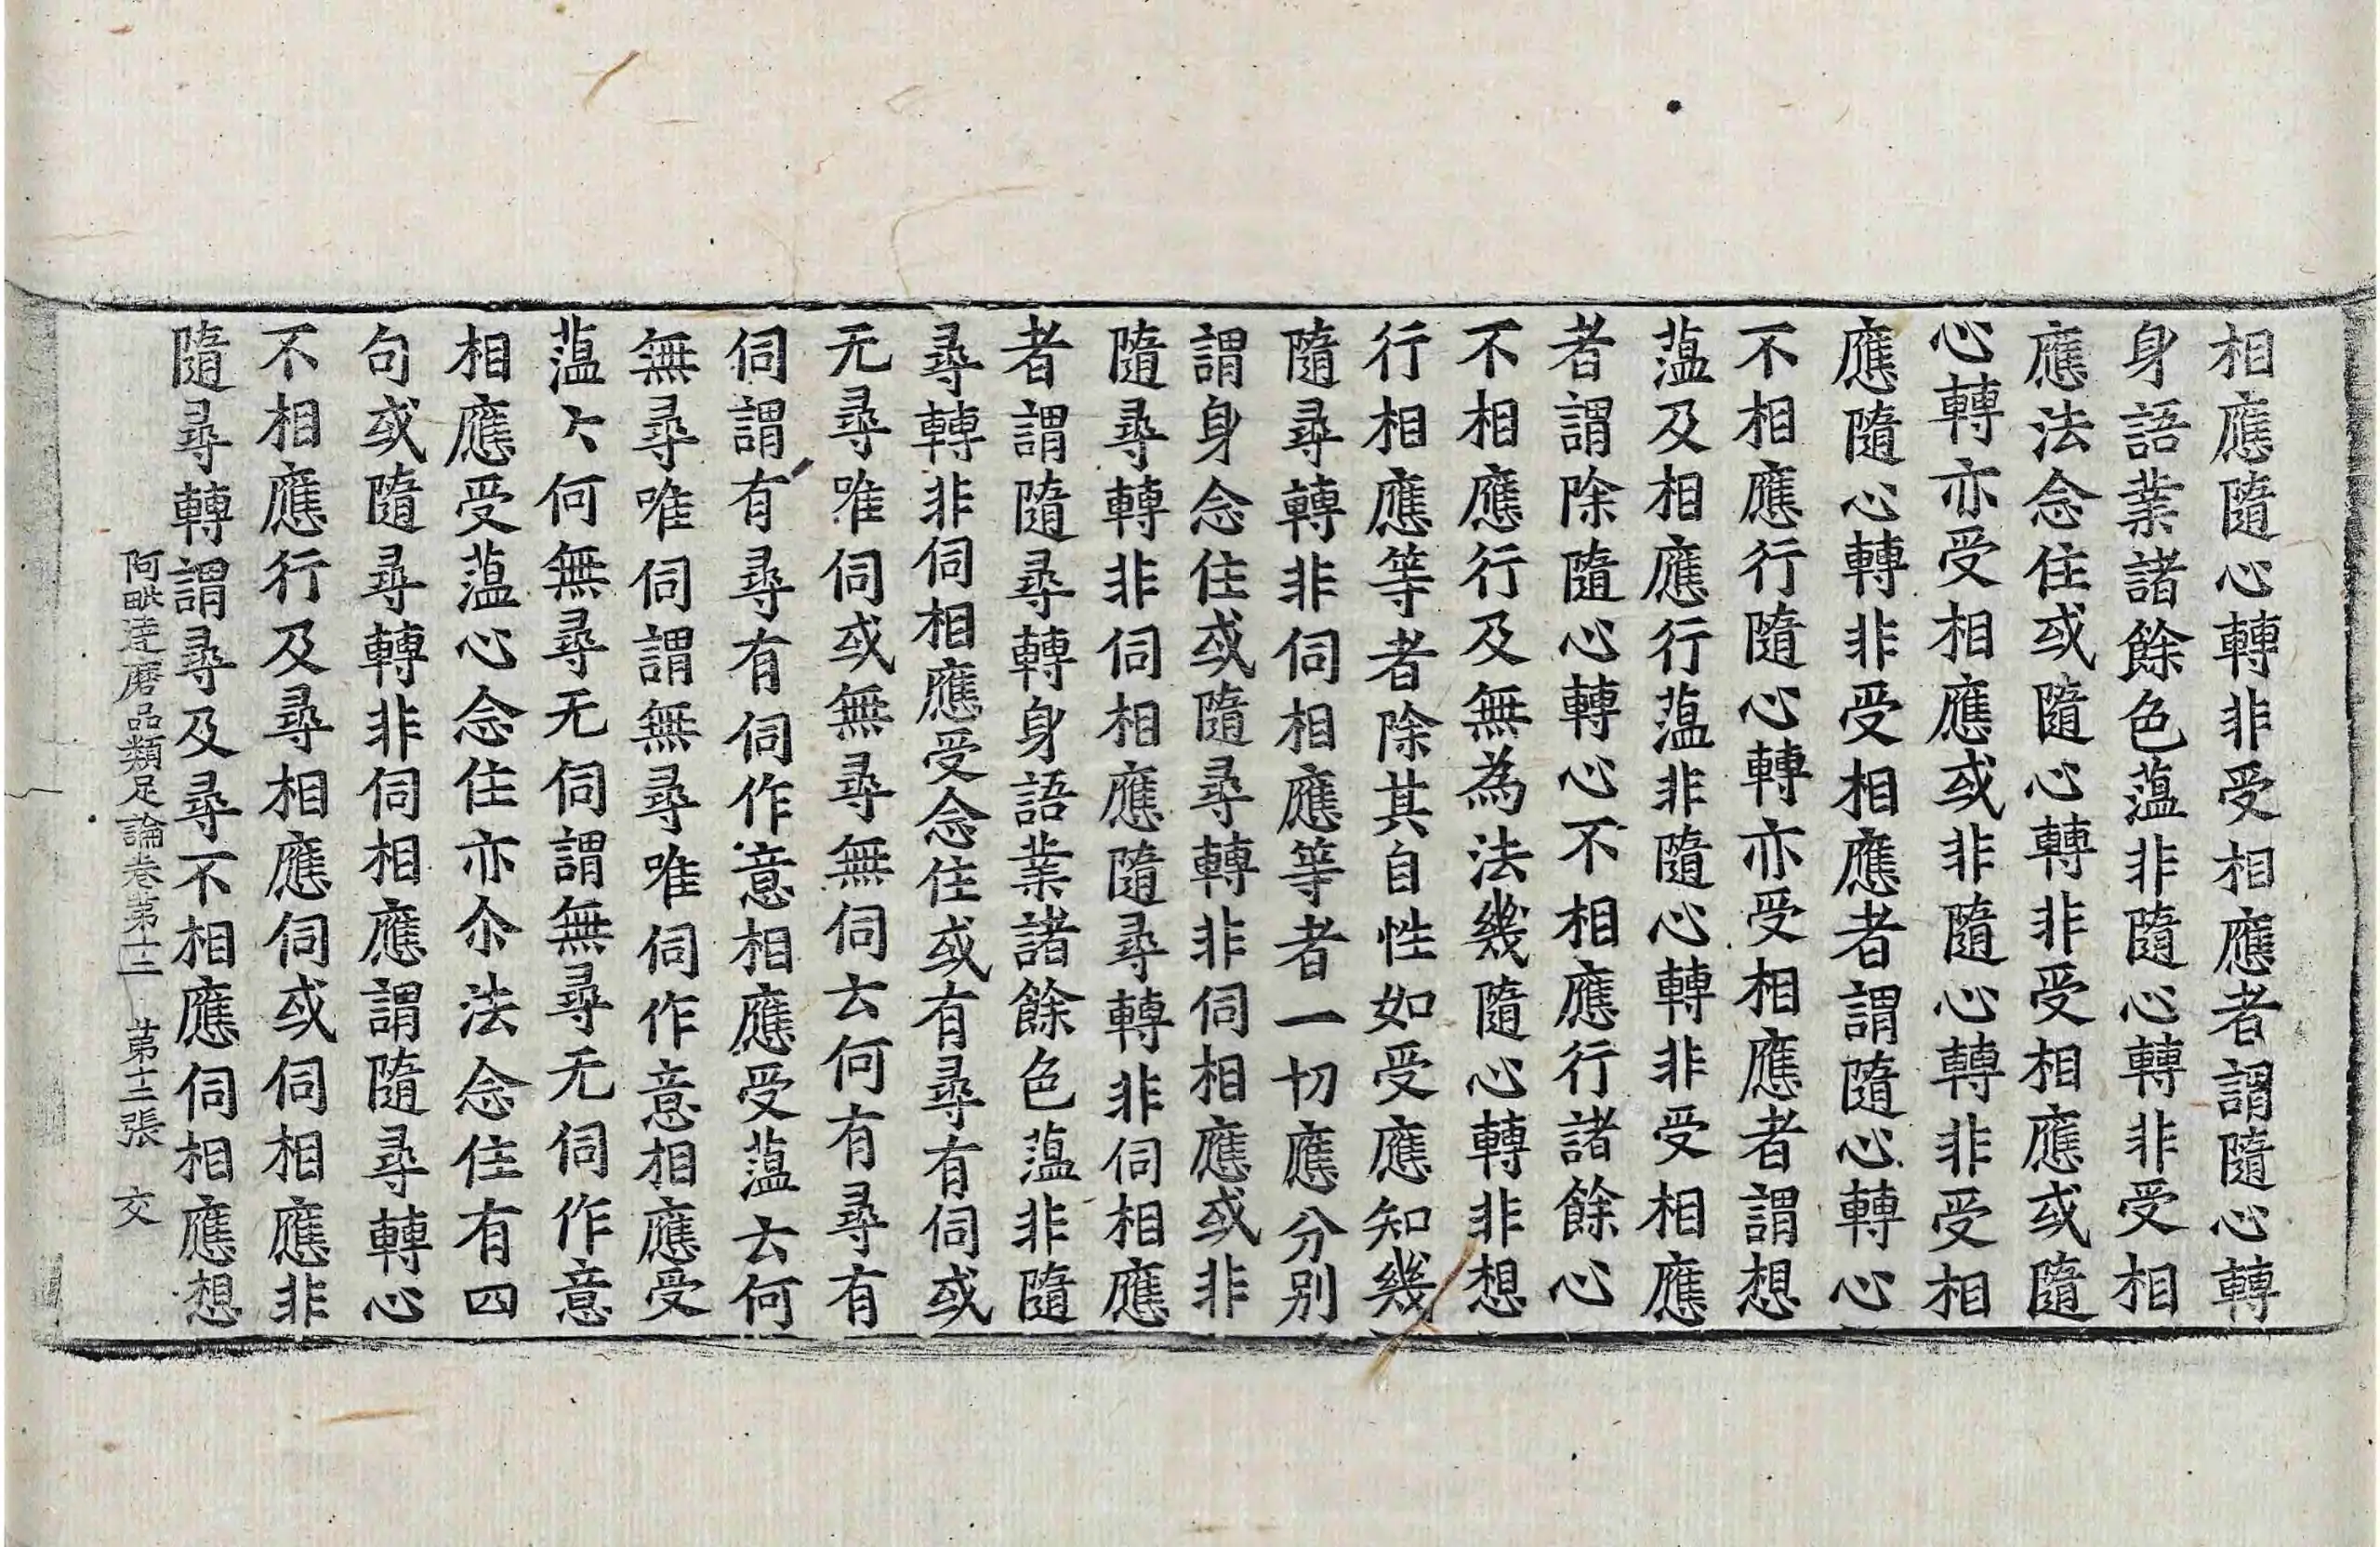 相應隨心轉非受相應者謂隨心轉
身語業諸餘色薀非隨心轉非受相
應法念住或隨心轉非受相應或隨
心轉亦受相應或非隨心轉非受相
應隨心轉非受相應者謂隨心轉心
不相應行隨心轉亦受相應者謂想
薀及相應行薀非隨心轉非受相應
者謂除隨心轉心不相應行諸餘心
不相應行及無為法幾隨心轉非想
行相應等者除其自性如受應知幾
隨尋轉非伺相應等者一切應分別
謂身念住或隨尋轉非伺相應或非
隨尋轉非伺相應隨尋轉非伺相應
者謂隨尋轉身語業諸餘色薀非隨
尋轉非伺相應受念住或有尋有伺或
无尋唯伺或無尋無伺云何有尋有
伺謂有尋有伺作意相應受薀云何
無尋唯伺謂無尋唯伺作意相應受
薀云何無尋无伺謂無尋无伺作意
相應受薀心念住亦尒法念住有四
句或隨尋轉非伺相應謂隨尋轉心
不相應行及尋相應伺或伺相應非
隨尋轉謂尋及尋不相應伺相應想
阿毗達磨品類足論卷第十二 第十三張 交